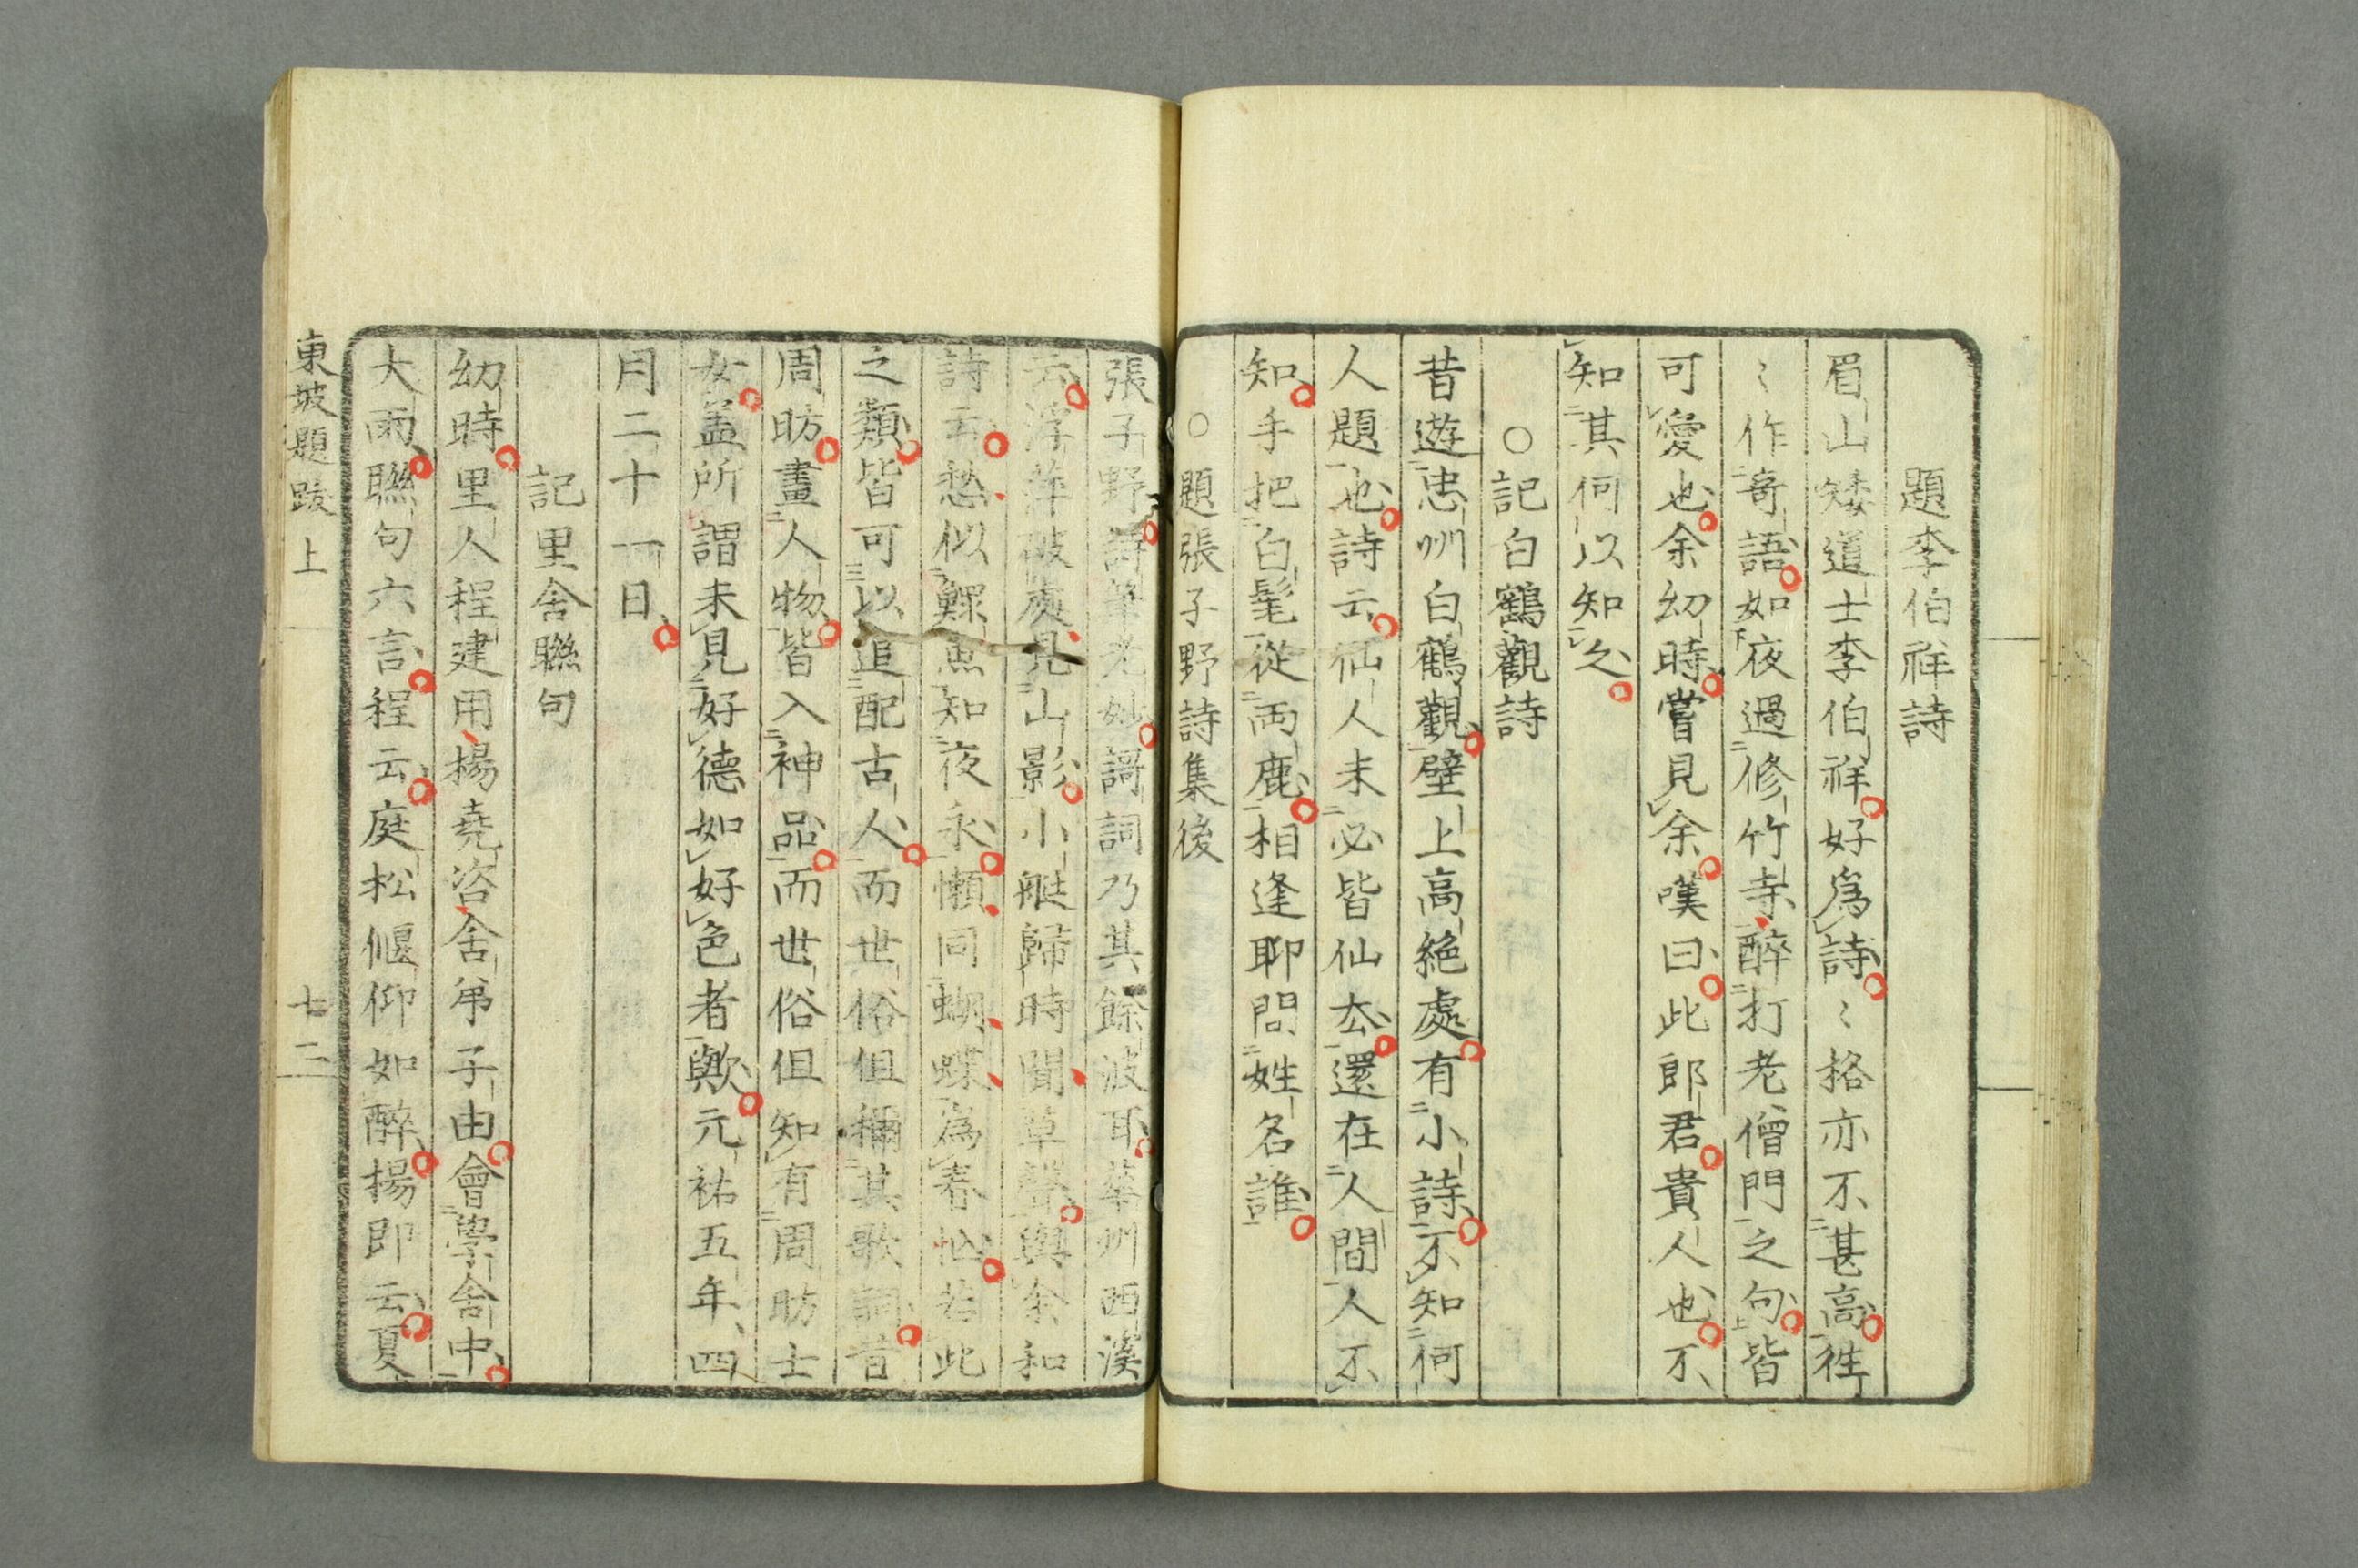 題李伯祥詩
眉山矮道士李伯祥好爲詩〻格亦不甚高往
〻作奇語如夜過修竹寺醉打老僧門之句皆
可愛也余幼時嘗見余嘆曰此郎君貴人也不
知其何以知之
○記白鶴觀詩
昔遊忠州白鶴觀壁上高絶處有小詩不知何
人題也詩云仙人未必皆仙去還在人間人不
知手把白髦從両鹿相逢聊問姓名誰
○題張子野詩集後
張子野詩筆老妙謌詞乃其餘波耳華州西溪
云浮萍破處見山影小艇歸時聞草聲與余和
詩云愁似鰥魚知夜永懶同蝴蝶為春忙若此
之類皆可以追配古人而世俗但稱其歌詞昔
周昉畫人物皆入神品而世俗但知有周昉士
女盖所謂未見好德如好色者歟元祐五年四
月二十一日
記里舍聯句
幼時里人程建用楊堯咨舍弟子由會學舍中
大雨聯句六言程云庭松偃仰如醉楊即云夏
東坡題跋 上 七二